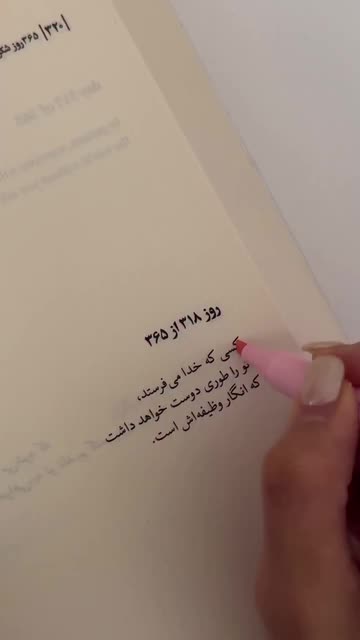 |۳۲۰| ۳۶۵روز
روز ۳۱۸ از ۳۶۵
کسی که خدا می‌فرستد،
تو را طوری دوست خواهد داشت
که انگار وظیفه‌اش است.